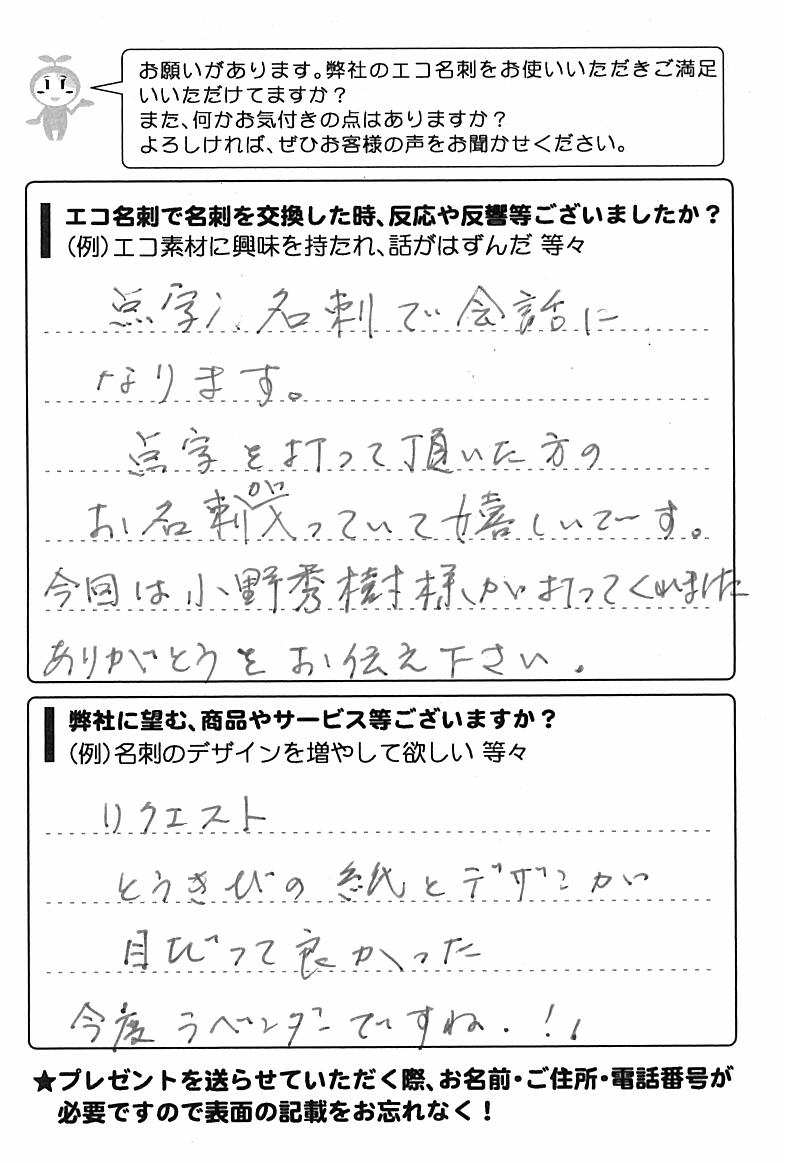 お願いがあります。弊社のエコ名刺をお使いいただきご満足
いいただけてますか？
また、何かお気付きの点はありますか？
よろしければ、ぜひお客様の声をお聞かせください。
エコ名刺で名刺を交換した時、反応や反響等ございましたか？
（例）エコ素材に興味を持たれ、話がはずんだ 等々
点字入名刺で会話に
なります。
点字を打って頂いた方の
お名刺が入っていて嬉しいでーす。
今回は小野秀樹様が打ってくれました
ありがとうをお伝え下さい．
弊社に望む、商品やサービス等ございますか？
（例）名刺のデザインを増やして欲しい 等々
リクエスト
とうきびの紙とデザインが
目びって良かった
今度ラベンダーですね．！！
★プレゼントを送らせていただく際、お名前・ご住所・電話番号が
必要ですので表面の記載をお忘れなく！